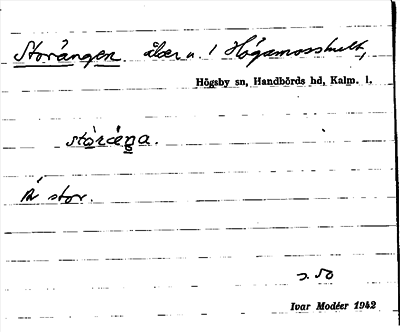 Storängen åker u. Högamosshult,
Högsby sn, Handbörds hd, Kalm. l.
stóràŋa.
Är stor.
s. 50
Ivar Modéer 1942